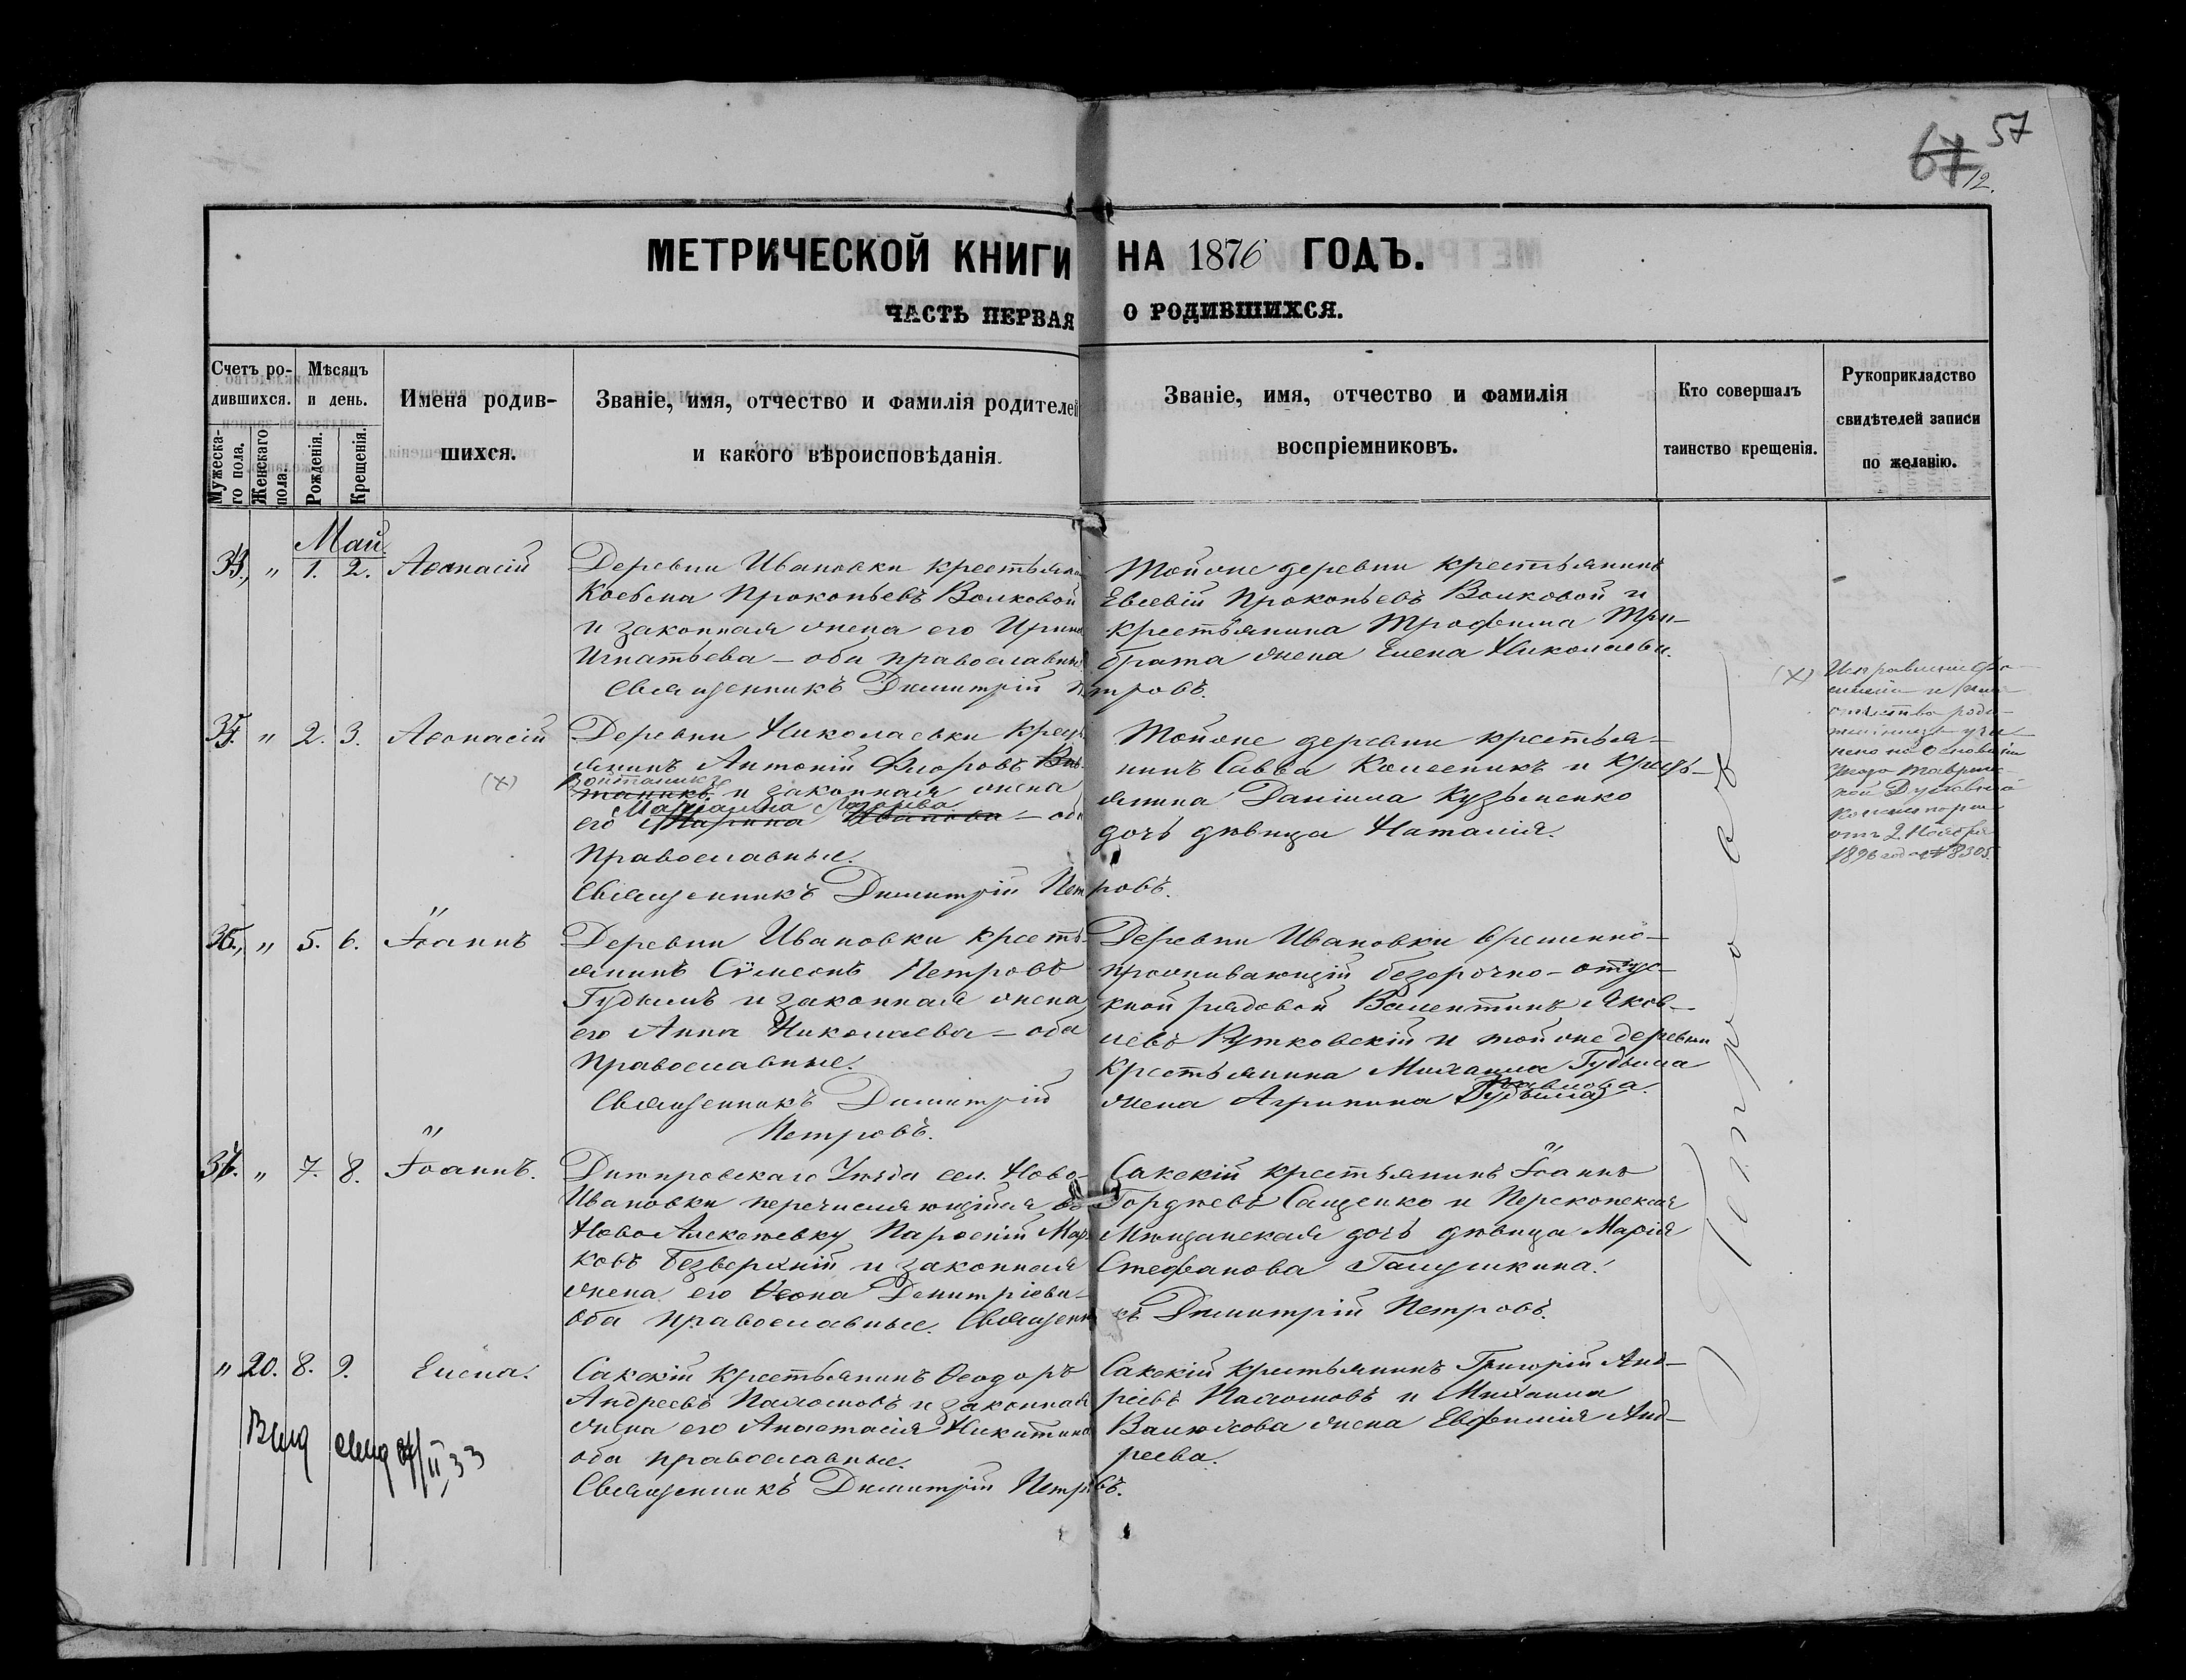 57
67
12.
МЕТРИЧЕСКОЙ КНИГИ НА 1876 ГОДЪ.
ЧАСТЬ ПЕРВАЯ О РОДИВШИХСЯ.
Счетъ ро-
дившихся.
Мужеска-
го пола.
Женскаго
пола.
Мѣсяцъ
и день.
Рожденія.
Крещенія.
Имена родив-
шихся.
Званіе, имя, отчество и фамилія родителей
и какого вѣроисповѣданія.
Званіе, имя, отчество и фамилія
воспріемниковъ.
Кто совершалъ
таинство крещенія.
Рукоприкладство
свидѣтелей записи
по желанію.
Май.
33. " 1. 2. Аѳанасій
Деревни Ивановки крестьянинъ
Козьма Прокопьевъ Волковой
и законная жена его Ирина
Игнатьева – оба православные
Священникъ Димитрій Петровъ.
Тойже деревни крестьянинъ
Евсевій Прокопьевъ Волковой и
крестьянина Трофима Три-
брата жена Елена Николаева.
34. " 2. 3. Аѳанасій
(х)
Деревни Николаевки крест
янинъ Антоній Флоровъ
и законная жена
его Марина Иванова – оба
Православные.
Священникъ Димитрій Петровъ.
Тойже деревни крестья-
нинъ Савва Колесникъ и крест-
янина Даніила Кузьменко
дочь дѣвица Наталія.
(х) Исправленіе фа-
миліи и
отчества роди-
учи-
нено на основаніи
Указа Тавричес-
кой Духовной
Консисторіи
отъ 2 Ноября
1896 года № 8305
35. " 5. 6. Іоаннъ
Деревни Ивановки кресть-
янинъ Сѵмеонъ Петровъ
Гудымъ и законная жена
его Анна Николаева – оба
Православные.
Священникъ Димитрій
Петровъ.
Деревни Ивановки временно-
проживающій безсрочно-отпус-
кной рядовой Валентинъ Яков-
левъ Рутковскій и тойже деревни
Крестьянина Михаила Гудыма
жена Агрипина Павлова.
36. " 7. 8. Іоаннъ.
Днѣпровскаго Уѣзда сел. Ново-
Ивановки перечисляющійся въ
Ново Алексѣевку Парѳеній Мар-
ковъ Безверхній и законная
жена его Ѳеона Димитріева –
Оба православные. Священникъ Димитрій Петровъ.
Сакскій крестьянинъ Іоаннъ
Гордѣевъ Сащенко и Перекопская
Мѣщанская дочь дѣвица Марія
Стефанова Галушкина.
" 20. 8. 9. Елена.
Сакскій крестьянинъ Ѳеодоръ
Андреевъ Пахомовъ и законная
жена его Анастасія Никитина
оба православные.
Священникъ Димитрій Петровъ.
Сакскій крестьянинъ Григорій Анд-
реевъ Пахомовъ и Михаила
жена Евфимія Анд-
реева.